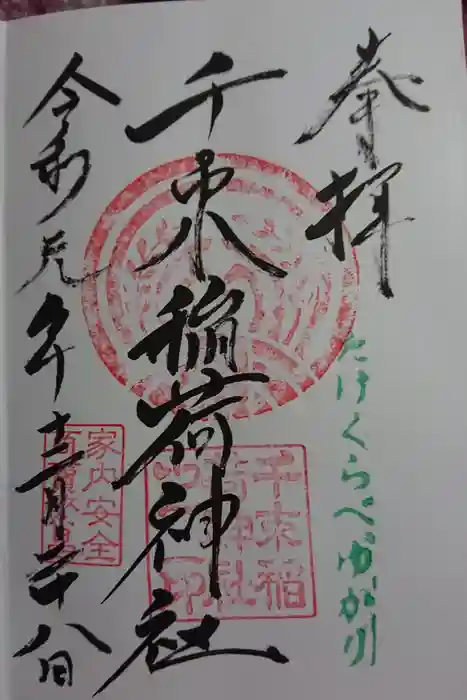 奉拝
たけくらべゆかり
千束稲荷神社
千束稲
荷神社
之印
令和元年十二月二十八日
家内安全